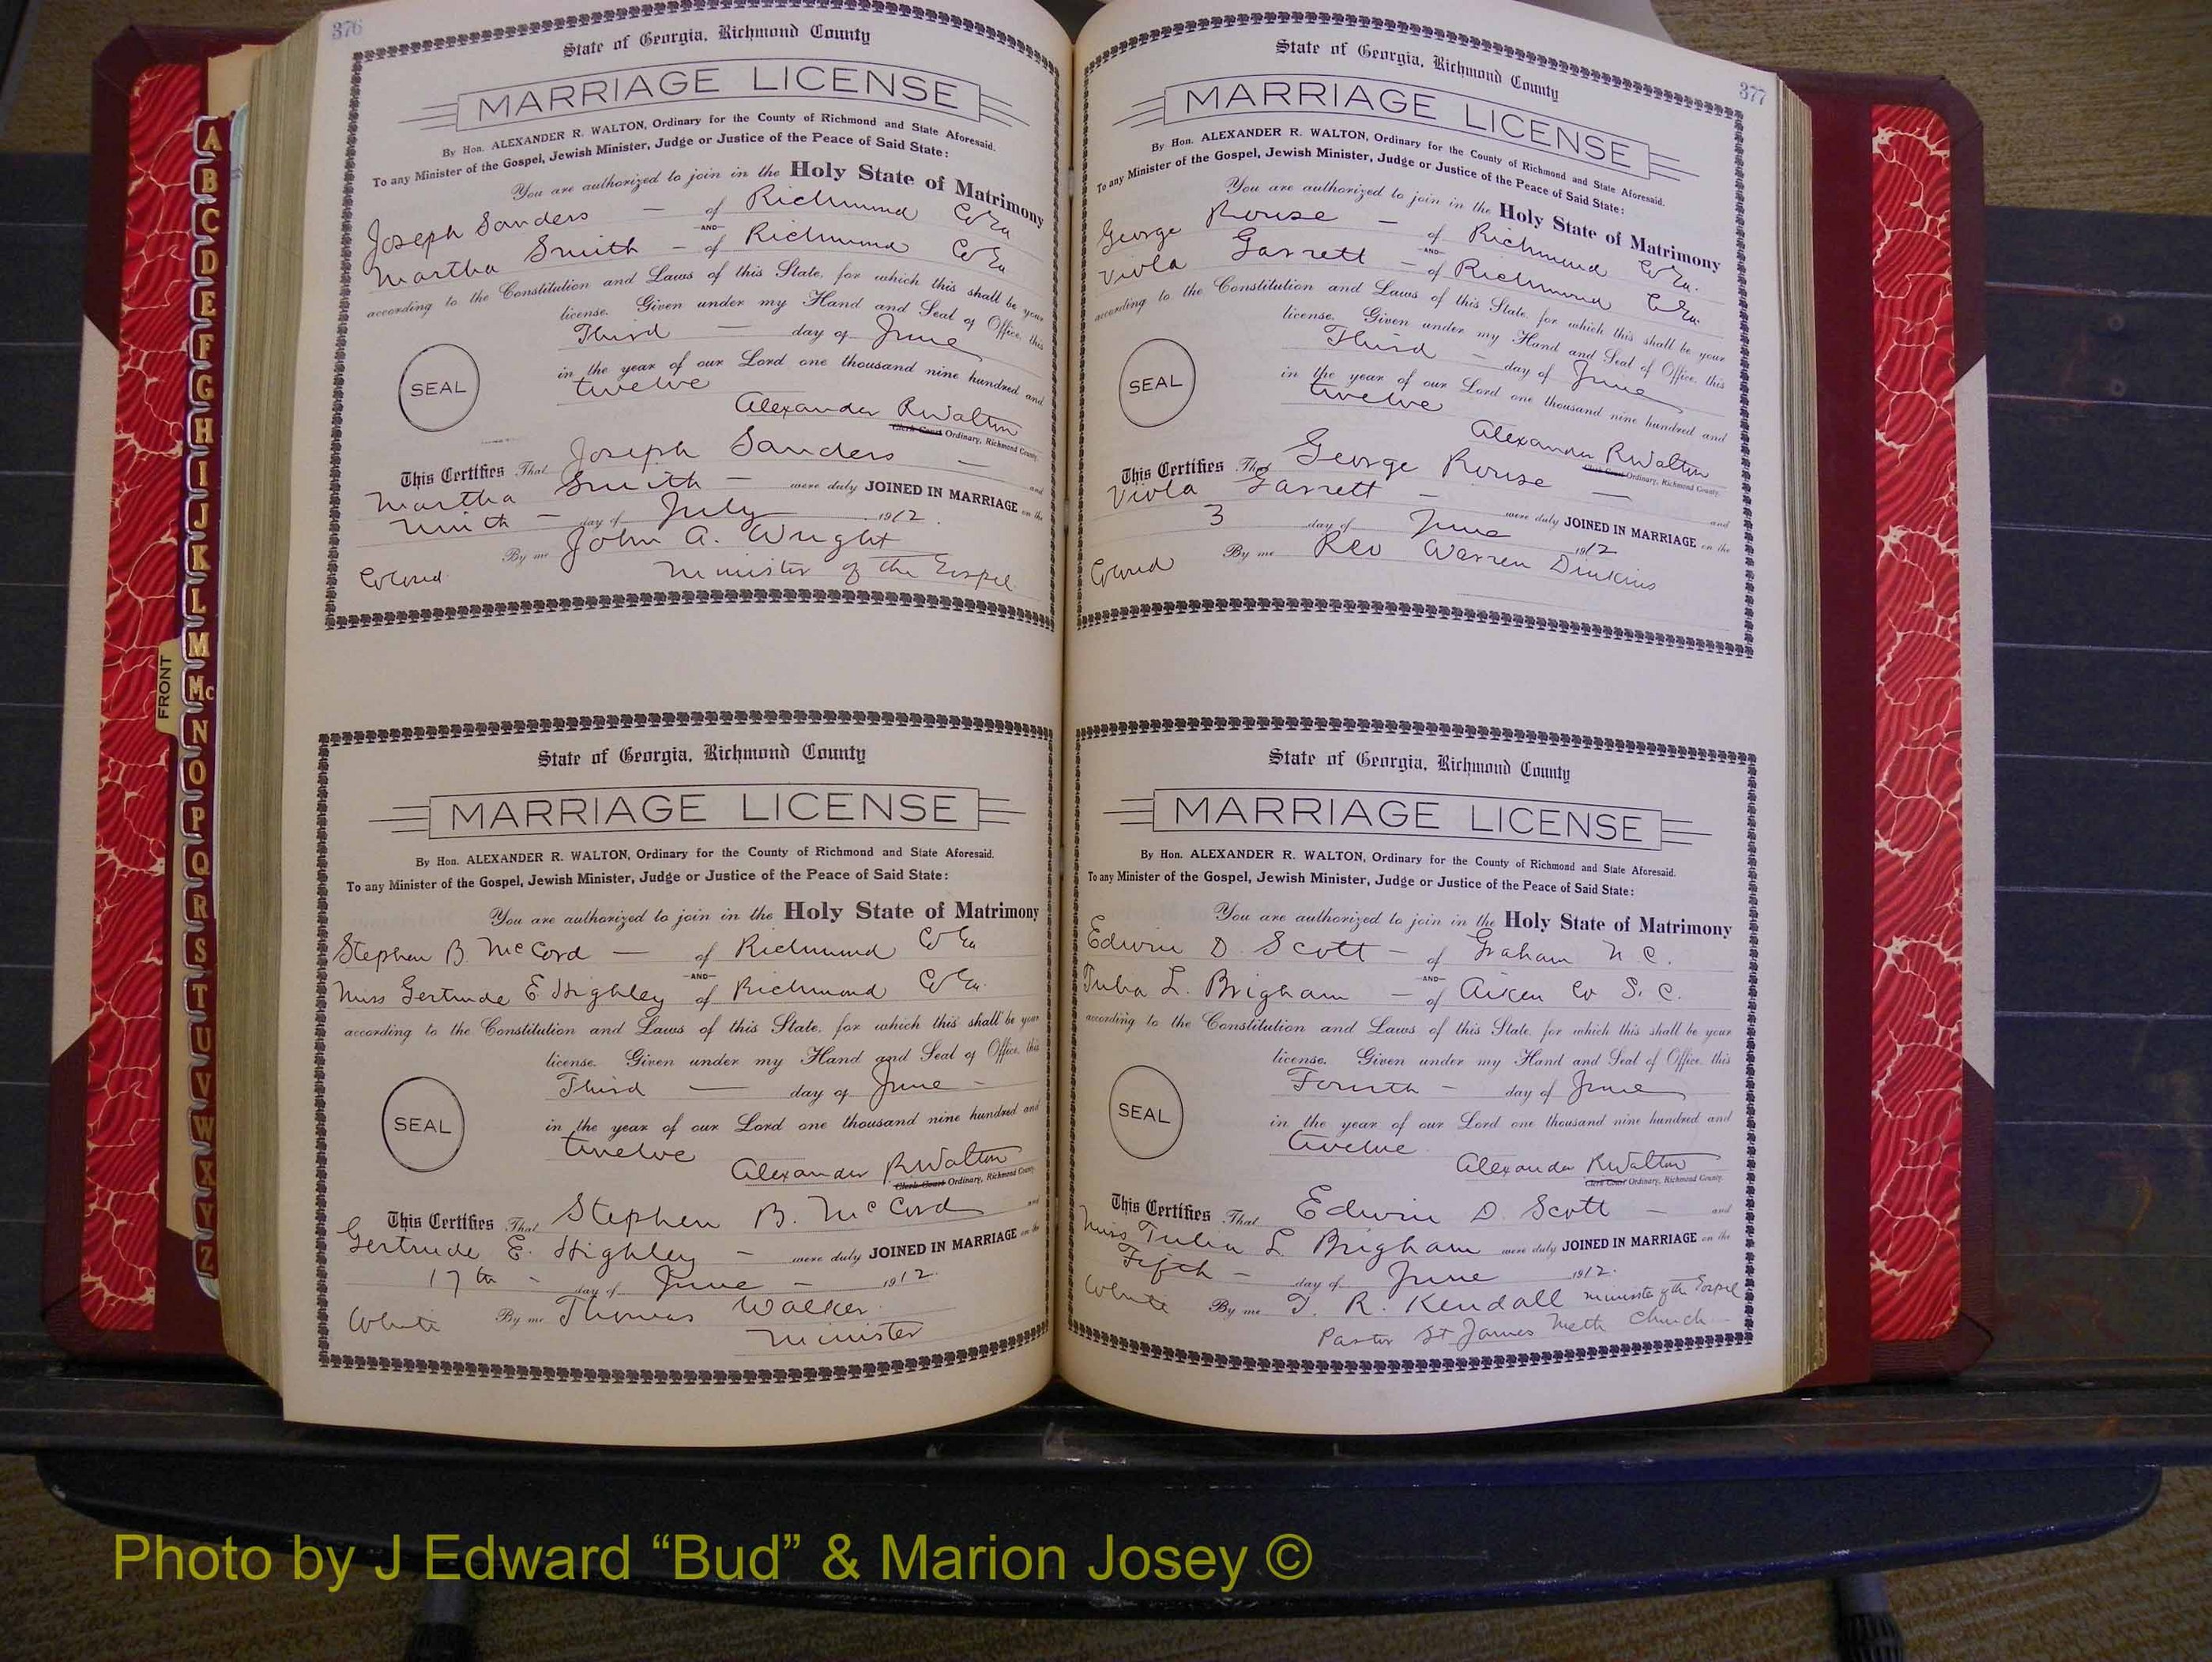 376
State of Georgia, Richmond County
MARRIAGE LICENSE
By Hon. ALEXANDER R. WALTON, Ordinary for the County of Richmond and State Aforesaid.
To any Minister of the Gospel, Jewish Minister, Judge or Justice of the Peace of Said State:
You are authorized to join in the Holy State of Matrimony
Joseph Sanders — of Richmond Co Ga
AND
Martha Smith — of Richmond Co Ga
according to the Constitution and Laws of this State, for which this shall be your
license. Given under my Hand and Seal of Office, this
Third — day of June
in the year of our Lord one thousand nine hundred and
twelve
SEAL
Alexander R Walton
Clerk Court Ordinary, Richmond County
This Certifies That Joseph Sanders — and
Martha Smith — were duly JOINED IN MARRIAGE on the
Ninth — day of July 1912.
By me John A. Wright
Colored Minister of the Gospel
State of Georgia, Richmond County
MARRIAGE LICENSE
By Hon. ALEXANDER R. WALTON, Ordinary for the County of Richmond and State Aforesaid.
To any Minister of the Gospel, Jewish Minister, Judge or Justice of the Peace of Said State:
You are authorized to join in the Holy State of Matrimony
Stephen B. McCord — of Richmond Co Ga
AND
Miss Gertrude E. Highley of Richmond Co Ga.
according to the Constitution and Laws of this State, for which this shall be your
license. Given under my Hand and Seal of Office, this
Third — day of June —
in the year of our Lord one thousand nine hundred and
twelve
SEAL
Alexander R Walton
Clerk Court Ordinary, Richmond County
This Certifies That Stephen B. McCord and
Gertrude E. Highley — were duly JOINED IN MARRIAGE on the
17th — day of June — 1912.
White By me Thomas Walker
Minister
377
State of Georgia, Richmond County
MARRIAGE LICENSE
By Hon. ALEXANDER R. WALTON, Ordinary for the County of Richmond and State Aforesaid.
To any Minister of the Gospel, Jewish Minister, Judge or Justice of the Peace of Said State:
You are authorized to join in the Holy State of Matrimony
George Rouse — of Richmond Co Ga.
AND
Viola Garrett — of Richmond Co Ga.
according to the Constitution and Laws of this State, for which this shall be your
license. Given under my Hand and Seal of Office, this
Third — day of June
in the year of our Lord one thousand nine hundred and
twelve
SEAL
Alexander R Walton
Clerk Court Ordinary, Richmond County
This Certifies That George Rouse — and
Viola Garrett — were duly JOINED IN MARRIAGE on the
3 day of June 1912
Colored By me Rev Warren Dinkins
State of Georgia, Richmond County
MARRIAGE LICENSE
By Hon. ALEXANDER R. WALTON, Ordinary for the County of Richmond and State Aforesaid.
To any Minister of the Gospel, Jewish Minister, Judge or Justice of the Peace of Said State:
You are authorized to join in the Holy State of Matrimony
Edwin D. Scott — of Graham N C.
AND
Tulia L. Brigham — of Aiken Co S. C.
according to the Constitution and Laws of this State, for which this shall be your
license. Given under my Hand and Seal of Office, this
Fourth — day of June
in the year of our Lord one thousand nine hundred and
twelve
SEAL
Alexander R Walton
Clerk Court Ordinary, Richmond County
This Certifies That Edwin D. Scott — and
Miss Tulia L. Brigham were duly JOINED IN MARRIAGE on the
Fifth — day of June 1912.
White By me T. R. Kendall minister of the Gospel
Pastor St James Meth Church
A
B
C
D
E
F
G
H
I
J
K
L
M
Mc
N
O
P
Q
R
S
T
U
V
W
X
Y
Z
FRONT
Photo by J Edward “Bud” & Marion Josey ©